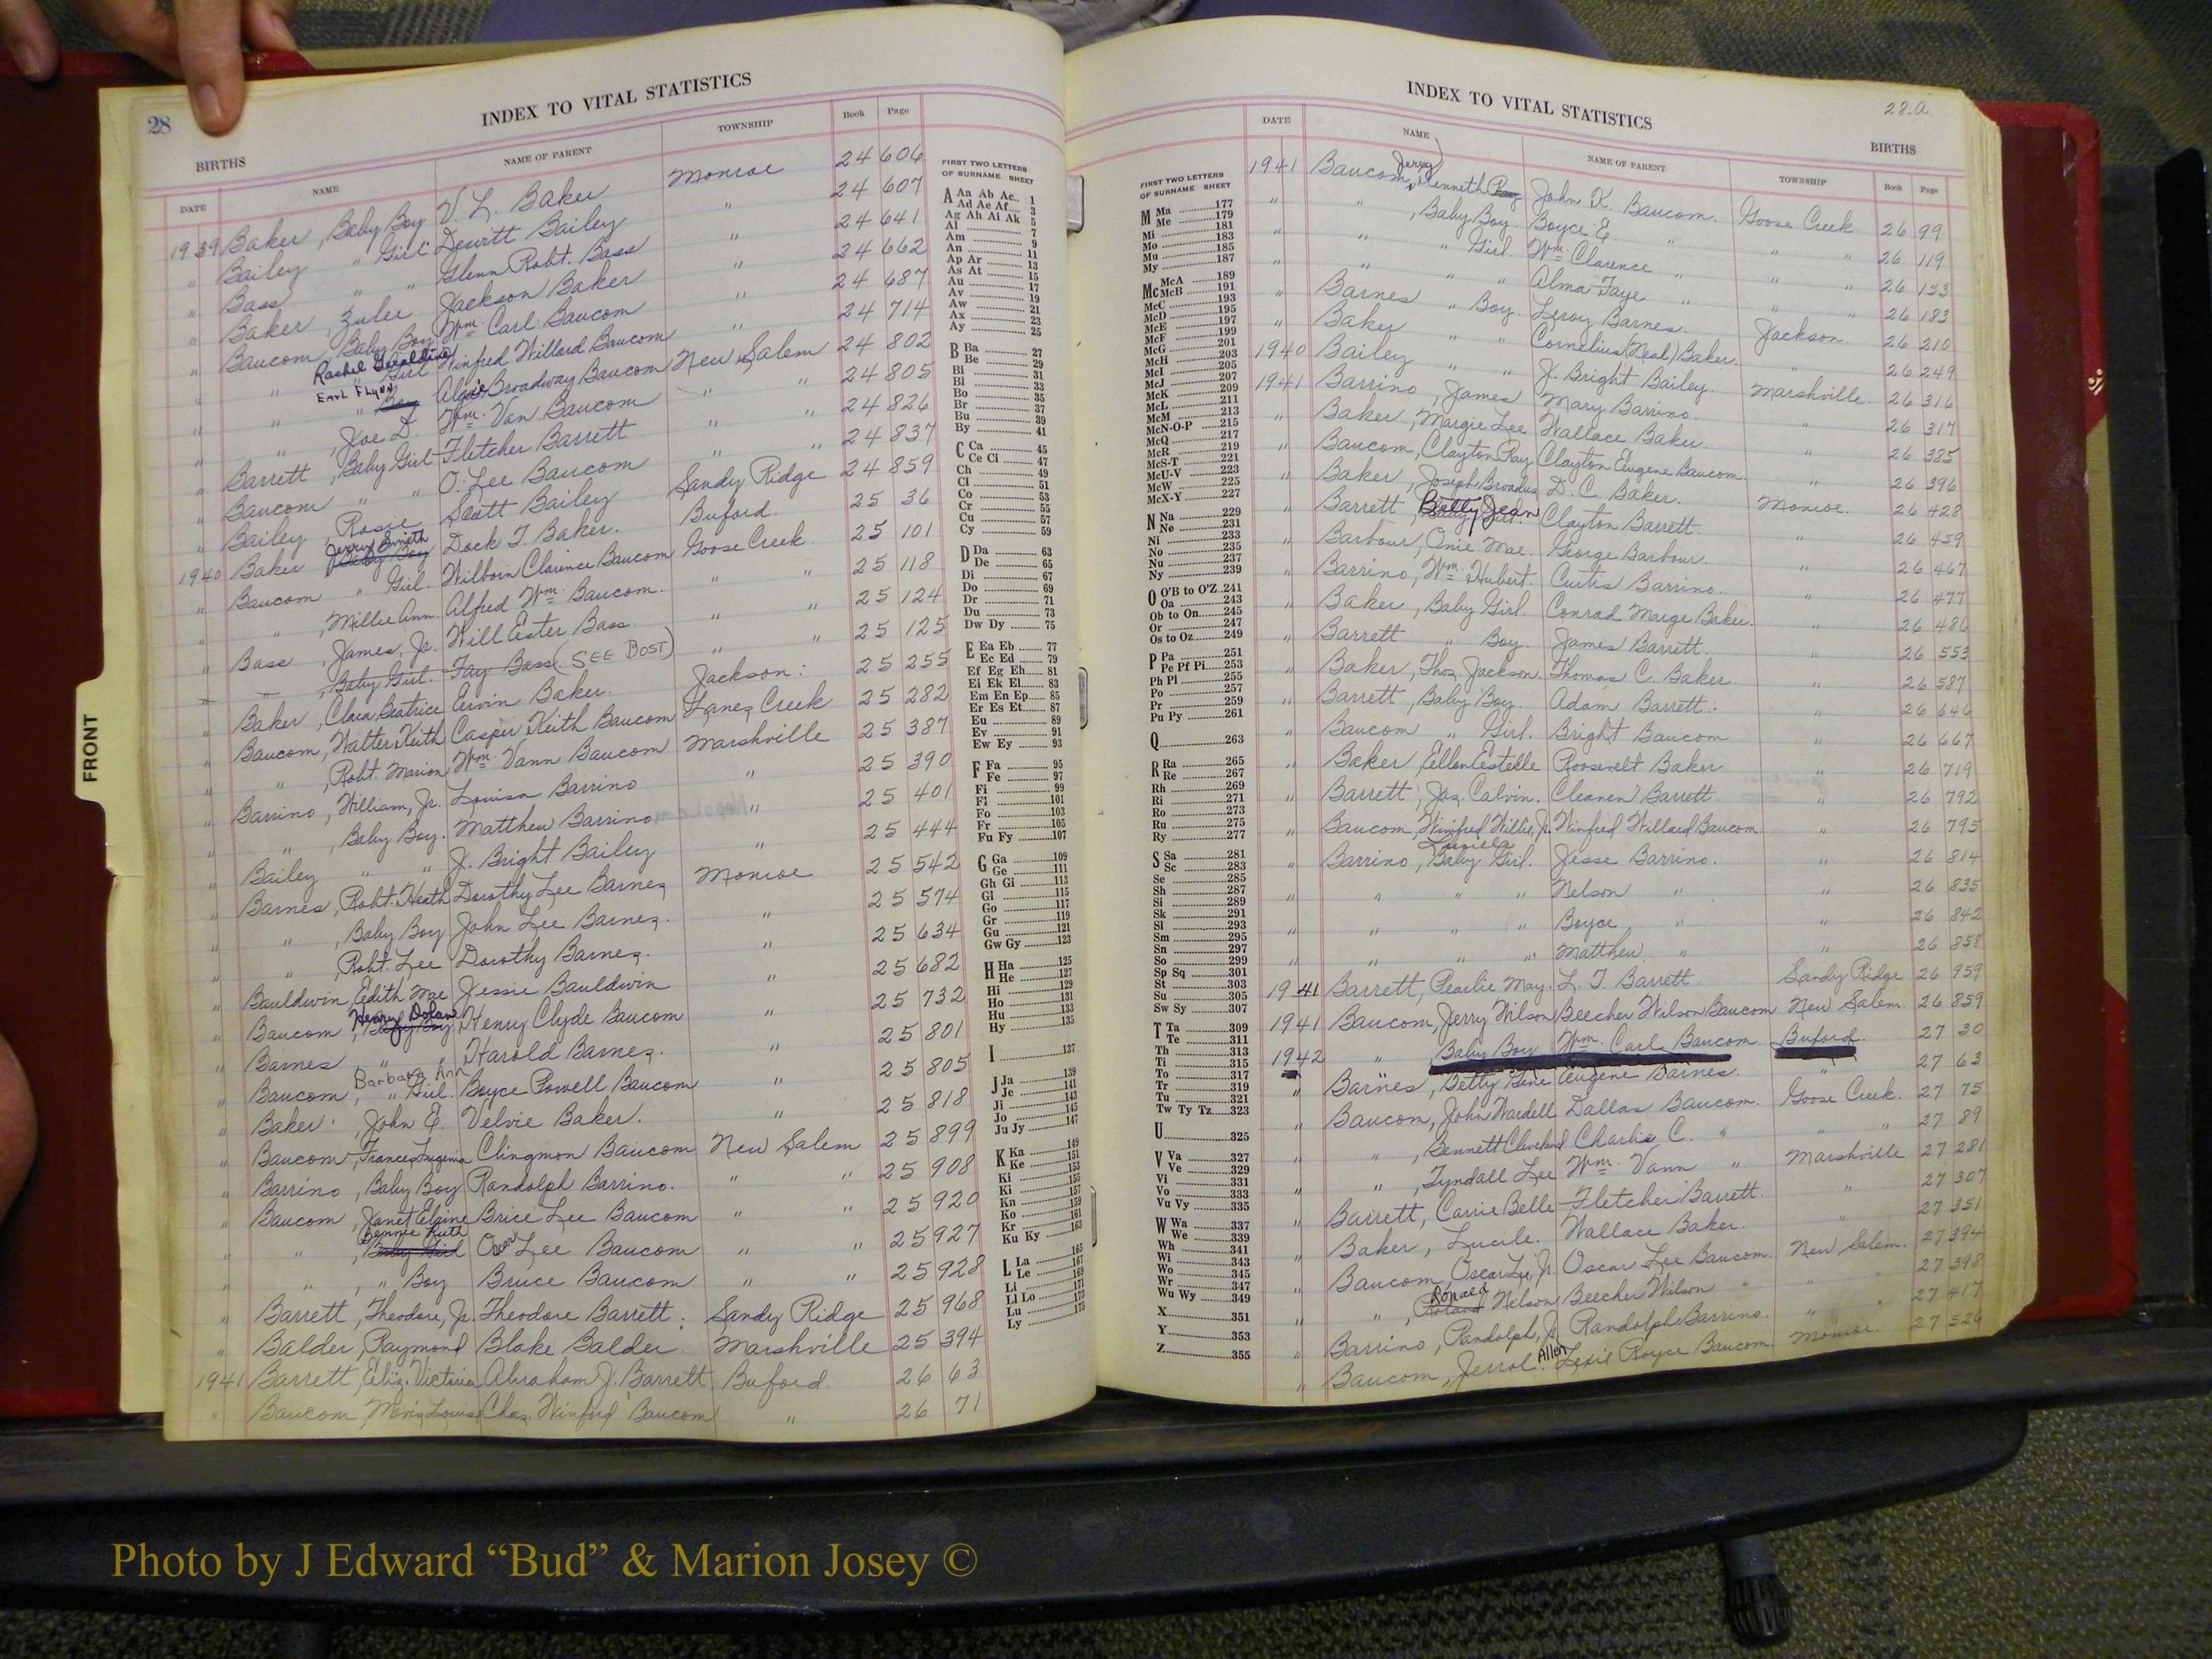 28
INDEX TO VITAL STATISTICS
BIRTHS
DATE NAME NAME OF PARENT TOWNSHIP Book Page
1939 Baker, Baby Boy V. L. Baker Monroe 24 606
" Bailey " Girl Dewitt Bailey " 24 607
" Bass " " Glenn Robt. Bass " 24 641
" Baker, Zulee Jackson Baker " 24 662
" Baucom, Baby Boy Wm. Carl Baucom " 24 687
" " Rachel Geraldine Girl Winfred Willard Baucom " 24 714
" " Earl Flynn Boy Algie Broadway Baucom New Salem 24 802
" " , Joe D. Wm. Van Baucom " " 24 805
" Barrett, Baby Girl Fletcher Barrett " " 24 826
" Baucom " " O. Lee Baucom " " 24 837
" Bailey, Rosie Scott Bailey Sandy Ridge 24 859
1940 Baker Jerry Smith Baby Boy Dock T. Baker. Buford. 25 36
" Baucom " Girl. Wilborn Clarence Baucom Goose Creek. 25 101
" " , Millie Ann. Alfred Wm. Baucom. " " 25 118
" Bass, James, Jr. Will Ester Bass. " " 25 124
" " , Baby Girl. Fay Bass (SEE BOST) " " 25 125
" Baker, Clara Beatrice Ervin Baker. Jackson: 25 255
" Baucom, Walter Keith Casper Keith Baucom Lanes Creek 25 282
" " , Robt. Marion Wm. Vann Baucom Marshville 25 387
" Barrino, William, Jr. Louisa Barrino " 25 390
" " , Baby Boy. Matthew Barrino " 25 401
" Bailey " " J. Bright Bailey " 25 444
" Barnes, Robt. Heath Dorothy Lee Barnes Monroe 25 542
" " , Baby Boy John Lee Barnes. " 25 574
" " , Robt. Lee Dorothy Barnes. " 25 634
" Bauldwin, Edith Mae Jessie Bauldwin " 25 682
" Baucom, Henry Dolan Baby Boy Henry Clyde Baucom " 25 732
" Barnes " " Harold Barnes. " 25 801
" Baucom, Barbara Ann " Girl. Boyce Powell Baucom " 25 805
" Baker, John E. Velvie Baker. " 25 818
" Baucom, Frances Eugenia Clingmon Baucom New Salem 25 899
" Barrino, Baby Boy Randolph Barrino. " " 25 908
" Baucom, Janet Elaine Brice Lee Baucom " " 25 920
" " , Bennie Ruth Baby Girl Oscar Lee Baucom " " 25 927
" " , " Boy Bruce Baucom " " 25 928
" Barrett, Theodore, Jr. Theodore Barrett. Sandy Ridge 25 968
" Balder, Raymond Blake Balder Marshville 25 394
1941 Barrett, Eliz. Victoria Abraham J. Barrett Buford. 26 63
" Baucom, Louise Chas. Winford Baucom " 26 71
FIRST TWO LETTERS
OF SURNAME SHEET
A Aa Ab Ac.. 1
Ad Ae Af... 3
Ag Ah Ai Ak 5
Al 7
Am 9
An 11
Ap Ar 13
As At 15
Au 17
Av 19
Aw 21
Ax 23
Ay 25
B Ba 27
Be 29
Bi 31
Bl 33
Bo 35
Br 37
Bu 39
By 41
C Ca 45
Ce Ci 47
Ch 49
Cl 51
Co 53
Cr 55
Cu 57
Cy 59
D Da 63
De 65
Di 67
Do 69
Dr 71
Du 73
Dw Dy 75
E Ea Eb 77
Ec Ed 79
Ef Eg Eh 81
Ei Ek El 83
Em En Ep 85
Er Es Et 87
Eu 89
Ev 91
Ew Ey 93
F Fa 95
Fe 97
Fi 99
Fl 101
Fo 103
Fr 105
Fu Fy 107
G Ga 109
Ge 111
Gh Gi 113
Gl 115
Go 117
Gr 119
Gu 121
Gw Gy 123
H Ha 125
He 127
Hi 129
Ho 131
Hu 133
Hy 135
I 137
J Ja 139
Je 141
Ji 143
Jo 145
Ju Jy 147
K Ka 149
Ke 151
Ki 153
Kl 155
Kn 159
Kr 161
Ku Ky 163
L La 165
Le 167
Li 169
Ll Lo 171
Lu 173
Ly 175
FRONT
INDEX TO VITAL STATISTICS
28-a
BIRTHS
DATE NAME NAME OF PARENT TOWNSHIP Book Page
1941 Baucom, Jerry Kenneth Ray John K. Baucom. Goose Creek 26 99
" " , Baby Boy. Boyce E. " " " 26 119
" " " Girl. Wm. Clarence " " " 26 153
" " " " Alma Faye " " " 26 183
" Barnes " Boy. Leroy Barnes. Jackson. 26 210
" Baker " " Cornelius (Neal) Baker. 26 249
1940 Bailey " " J. Bright Bailey. Marshville. 26 316
1941 Barrino, James Mary Barrino. " 26 317
" Baker, Margie Lee Wallace Baker. " 26 385
" Baucom, Clayton Ray Clayton Eugene Baucom. " 26 396
" Baker, Joseph Broadus D. C. Baker. Monroe. 26 428
" Barrett, Betty Jean Clayton Barrett. " 26 459
" Barbour, Onie Mae. George Barbour. " 26 467
" Barrino, Wm. Hubert. Curtis Barrino. " 26 477
" Baker, Baby Girl. Conrad Marge Baker. " 26 486
" Barrett " Boy. James Barrett. " 26 553
" Baker, Thos. Jackson. Thomas C. Baker. " 26 587
" Barrett, Baby Boy. Adam Barrett. " 26 646
" Baucom " Girl. Bright Baucom " 26 667
" Baker, Ellen Estelle Roosevelt Baker " 26 719
" Barrett, Jas. Calvin. Cleaven Barrett " 26 792
" Baucom, Winifred Willie, Jr. Winfred Willard Baucom " 26 795
" Barrino, Baby Girl. Jesse Barrino. " 26 814
" " " " Nelson " " 26 835
" " " " Boyce " " 26 842
" " " " Matthew " " 26 858
1941 Barrett, Pearlie May. L. T. Barrett Sandy Ridge 26 959
1941 Baucom, Jerry Wilson Beecher Wilson Baucom New Salem 26 859
1942 " Baby Boy Wm. Carl Baucom Buford. 27 30
" Barnes, Betty Gene Eugene Barnes. " 27 63
" Baucom, John Wardell Dallas Baucom. Goose Creek. 27 75
" " , Bennett Cleveland Charlie C. " " " 27 89
" " , Tyndall Lee Wm. Vann " Marshville 27 281
" Barrett, Carrie Belle Fletcher Barrett. " 27 307
" Baker, Lucile. Wallace Baker. " 27 351
" Baucom, Oscar Lee, Jr. Oscar Lee Baucom. New Salem. 27 394
" " , Ronald Roland Nelson Beecher Wilson " " 27 398
" Barrino, Randolph, Jr. Randolph Barrino. " " 27 417
" Baucom, Jerral Allen Lexie Royce Baucom. Monroe. 27 526
FIRST TWO LETTERS
OF SURNAME SHEET
M Ma 177
Me 179
Mi 181
Mo 183
Mu 185
My 187
Mc McA 189
McB 191
McC 193
McD 195
McE 197
McF 199
McG 201
McH 203
McI 205
McJ 207
McK 209
McL 211
McM 213
McN-O-P 215
McQ 217
McR 219
McS-T 221
McU-V 223
McW 225
McX-Y 227
N Na 229
Ne 231
Ni 233
No 235
Nu 237
Ny 239
O O'B to O'Z 241
Oa 243
Ob to On 245
Or 247
Os to Oz 249
P Pa 251
Pe Pf Pi 253
Ph Pl 255
Po 257
Pr 259
Pu Py 261
Q 263
R Ra 265
Re 267
Rh 269
Ri 271
Ro 273
Ru 275
Ry 277
S Sa 281
Sc 283
Se 285
Sh 287
Si 289
Sk 291
Sl 293
Sm 295
Sn 297
So 299
Sp Sq 301
St 303
Su 305
Sw Sy 307
T Ta 309
Te 311
Th 313
Ti 315
To 317
Tr 319
Tu 321
Tw Ty Tz 323
U 325
V Va 327
Ve 329
Vi 331
Vo 333
Vu Vy 335
W Wa 337
We 339
Wh 341
Wi 343
Wo 345
Wr 347
Wu Wy 349
X 351
Y 353
Z 355
Photo by J Edward “Bud” & Marion Josey ©